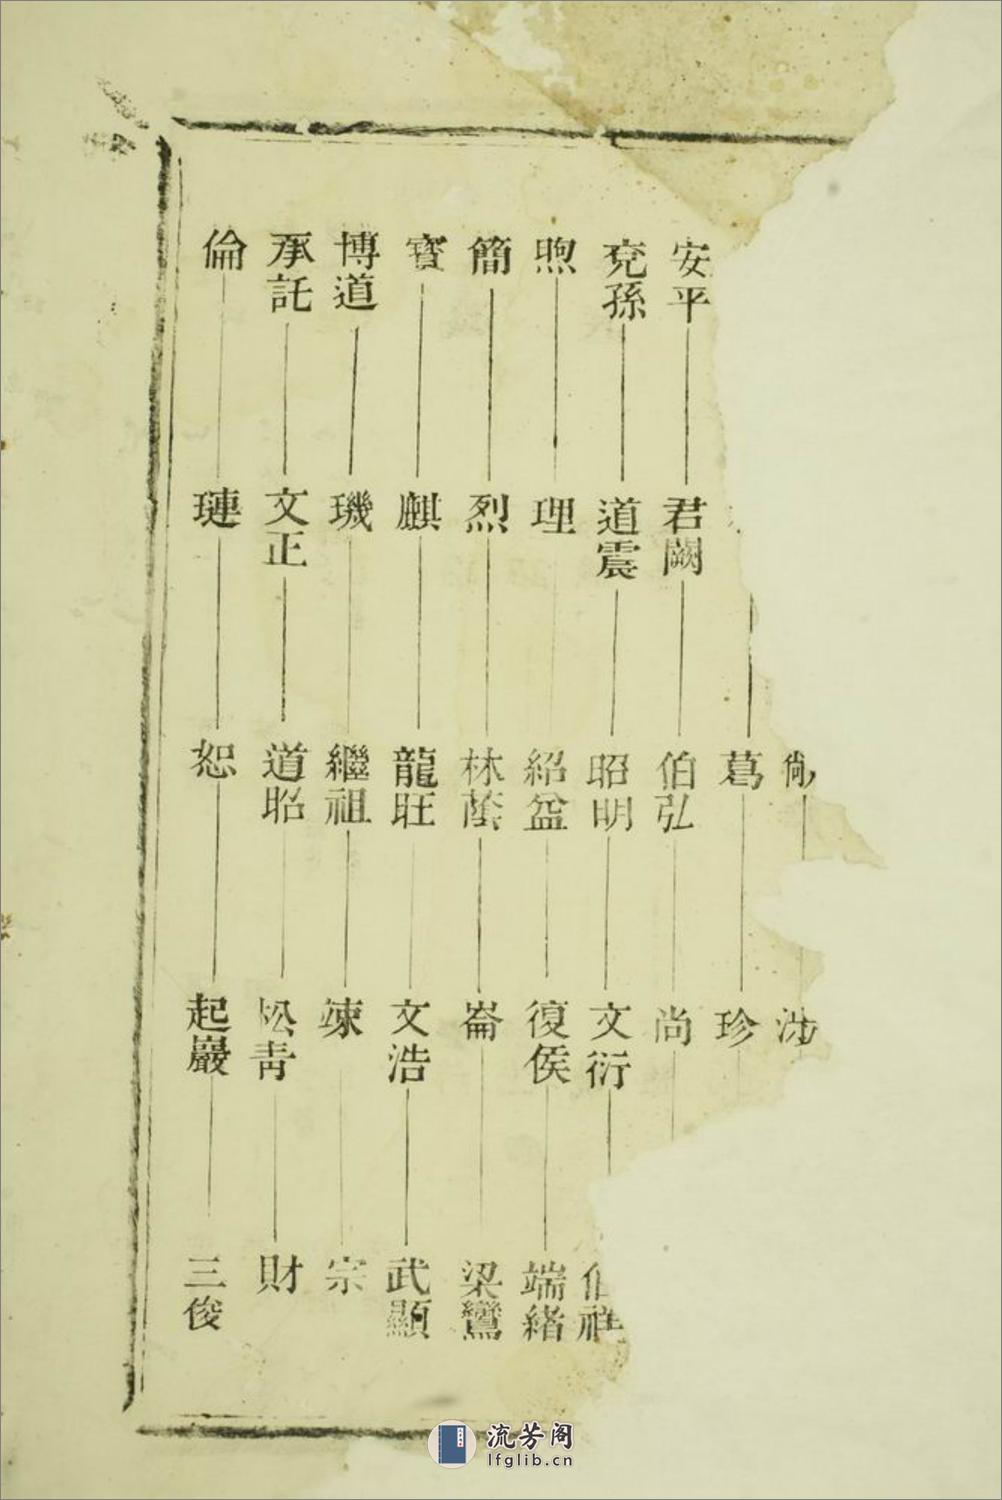 安平
君闕
伯弘
尚
兖孫
道震
昭明
文衍
煦
理
紹益
復侯
端緒
簡
烈
林蔭
崙
梁鸞
寶
麒
龍旺
文浩
武顯
博道
璣
繼祖
竦
宗
承託
文正
道昭
松青
財
倫
璉
恕
起巖
三俊
葛
珍
流芳阁
lfglib.cn